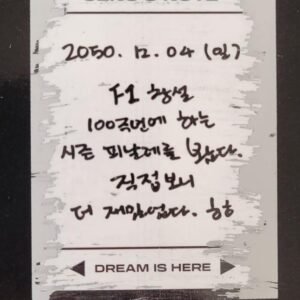 2050. 12. 04 (일)
F1 창설
100주년에 하는
시즌 피날레를 봤다.
직접 보니
더 재밌었다. ㅎㅎ
DREAM IS HERE